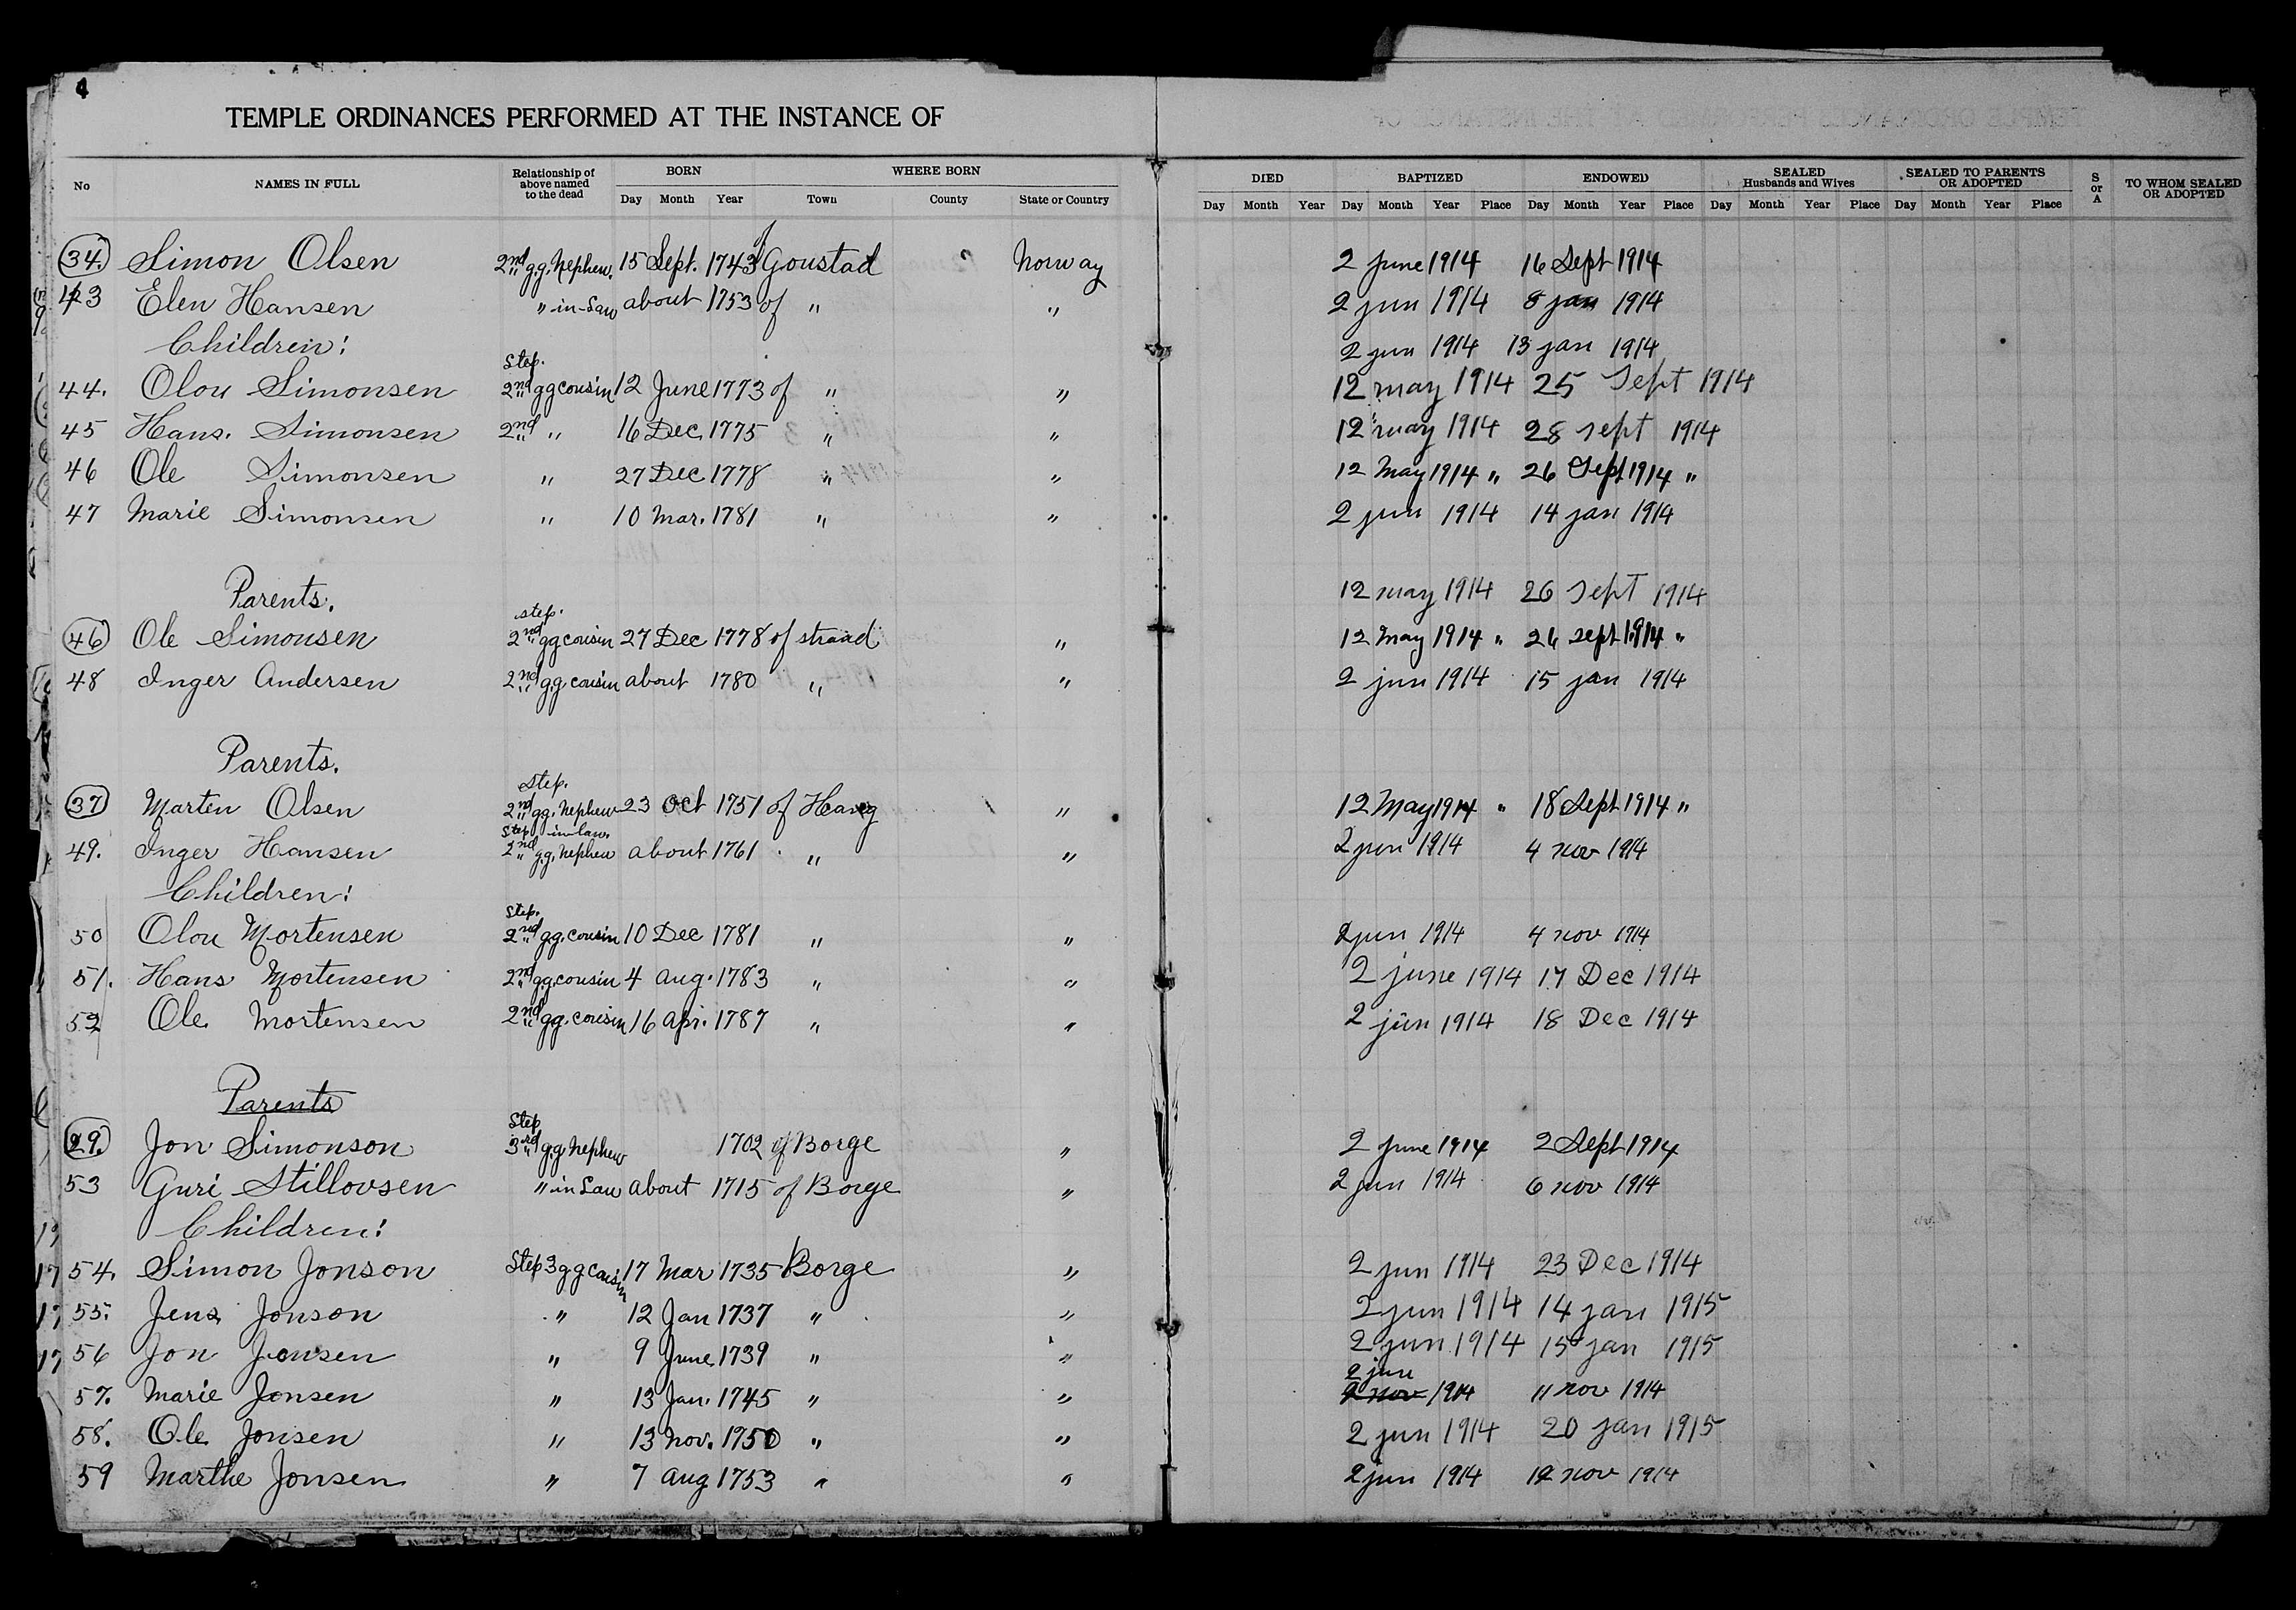 4
TEMPLE ORDINANCES PERFORMED AT THE INSTANCE OF
No NAMES IN FULL Relationship of above named to the dead BORN Day Month Year WHERE BORN Town County State or Country DIED Day Month Year BAPTIZED Day Month Year Place ENDOWED Day Month Year Place SEALED Husbands and Wives Day Month Year Place SEALED TO PARENTS OR ADOPTED Day Month Year Place S or A TO WHOM SEALED OR ADOPTED
34. Simon Olsen 2nd g.g. Nephew. 15 Sept. 1743 Goustad Norway 2 June 1914 16 Sept 1914
43 Elen Hansen " in-Law about 1753 of " " 2 jun 1914 8 jan 1914
Children: 2 jun 1914 13 jan 1914
44. Olou Simonsen Step. 2nd gg cousin 12 June 1773 of " " 12 may 1914 25 Sept 1914
45 Hans. Simonsen 2nd " 16 Dec. 1775 " " 12 may 1914 28 sept 1914
46 Ole Simonsen " 27 Dec 1778 " " 12 May 1914 " 26 Sept 1914 "
47 Marie Simonsen " 10 Mar. 1781 " " 2 jun 1914 14 jan 1914
Parents. 12 may 1914 26 Sept 1914
46 Ole Simonsen step. 2nd gg cousin 27 Dec 1778 of strand " 12 May 1914 " 26 sept 1914 "
48 Inger Andersen 2nd g.g. cousin about 1780 " " 2 jun 1914 15 jan 1914
Parents.
37 Marten Olsen Step. 2nd gg. Nephew 23 Oct 1751 of Haug " 12 May 1914 " 18 Sept 1914 "
49. Inger Hansen Step in-law. 2nd g.g. Nephew about 1761 " " 2 jun 1914 4 nov 1914
Children:
50 Olou Mortensen Step. 2nd g.g. cousin 10 Dec 1781 " " 2 jun 1914 4 nov 1914
51. Hans Mortensen 2nd gg. cousin 4 aug. 1783 " " 2 june 1914 17 Dec 1914
52 Ole. Mortensen 2nd gg. cousin 16 Apr. 1787 " " 2 jun 1914 18 Dec 1914
Parents
29. Jon Simonson Step 3rd g.g. Nephew 1702 of Borge " 2 June 1914 2 Sept 1914
53 Guri Stillovsen " in Law about 1715 of Borge " 2 jun 1914 6 nov 1914
Children:
54. Simon Jonson Step 3 g g cousin 17 Mar 1735 Borge " 2 jun 1914 23 Dec 1914
55. Jens Jonson " 12 Jan 1737 " " 2 jun 1914 14 jan 1915
56 Jon Jonsen " 9 June 1739 " " 2 jun 1914 15 jan 1915
2 june
57. Marie Jonsen " 13 Jan. 1745 " " 2 nov 1914 11 nov 1914
58. Ole Jonsen " 13 Nov. 1750 " " 2 jun 1914 20 jan 1915
59 Marthe Jonsen " 7 Aug 1753 " " 2 jun 1914 12 nov 1914